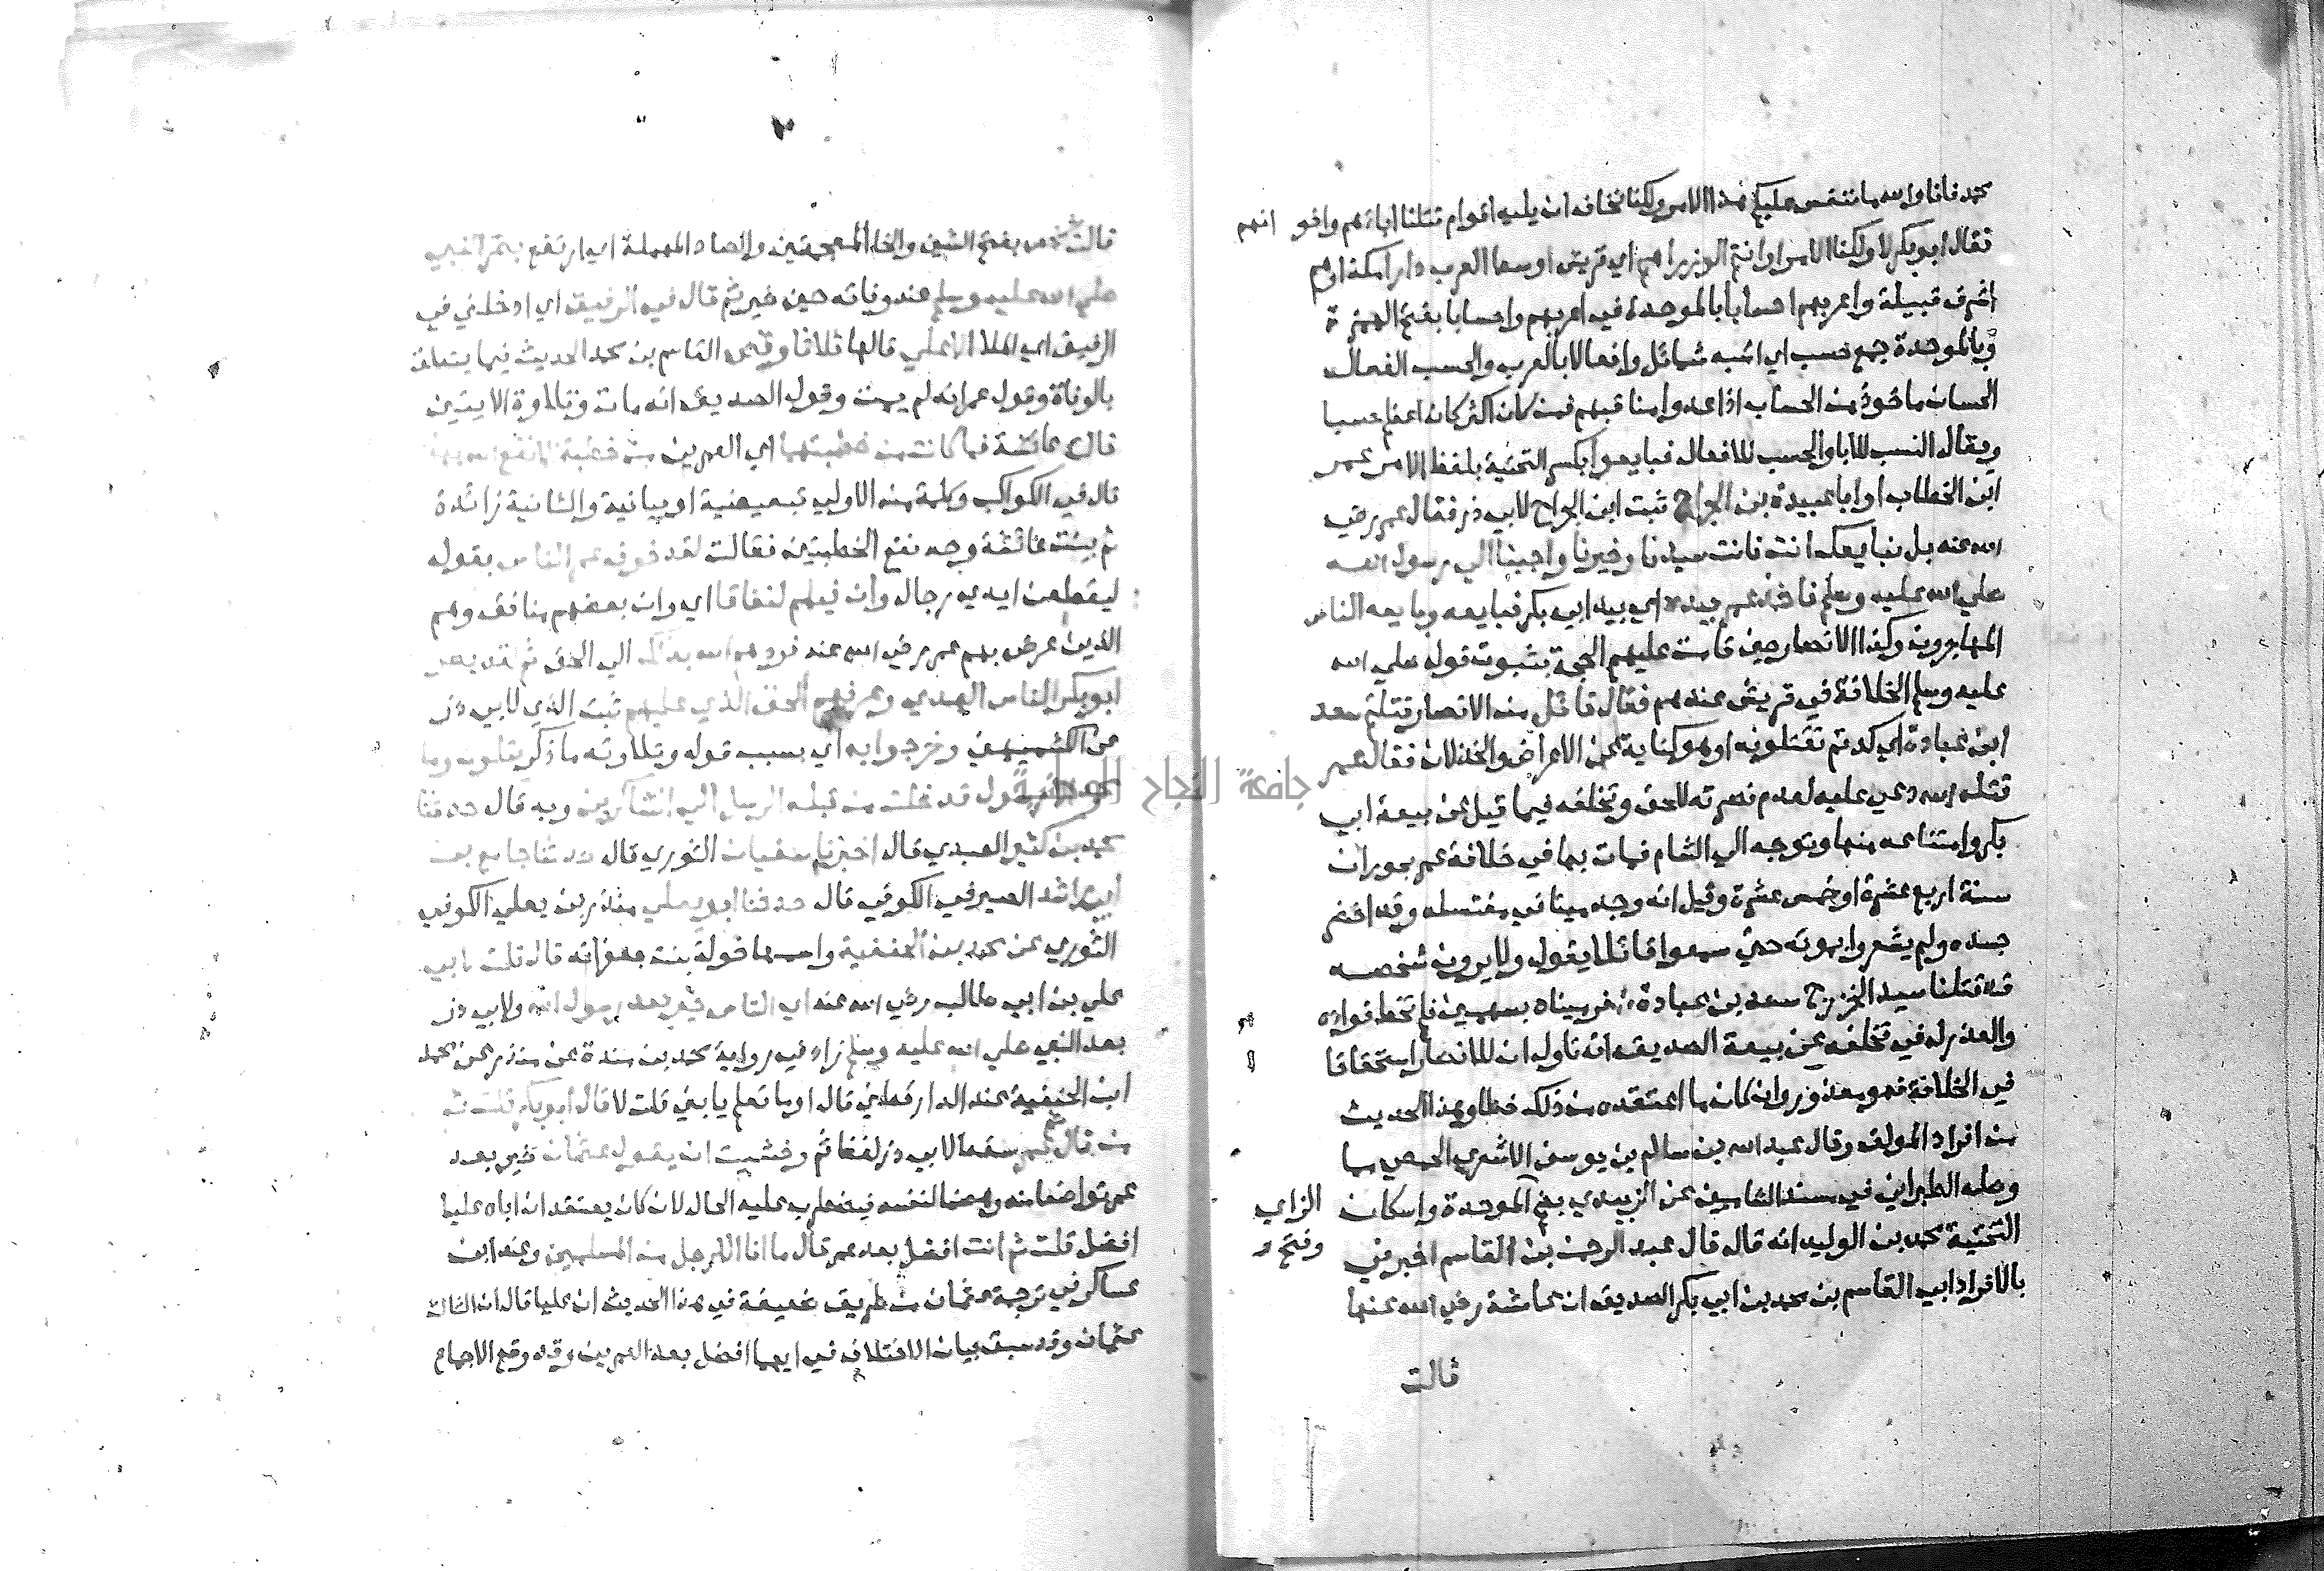 محمد فانا والله ما ننفس عليكم هذا الامر ولكنا نخاف ان يليه اقوام قتلنا اباءهم واخو انهم
فقال ابو بكر لا ولكنا الامرا وانتم الوزرا هم اي قريش اوسط العرب دارا مكة اي هم
اشرف قبيلة واعربهم احسابا بالموحدة في اعربهم واحسابا بفتح الهمزة
وبالموحدة جمع حسب اي اشبه شمائل وافعالا بالعرب والحسب الفعال
الحسان ماخوذ من الحساب اذا عدوا مناقبهم فمن كان اكثر كان اعظم حسبا
ويقال النسب للابا والحسب للافعال فبايعوا بكسر التحتية بلفظ الامر عمر
ابن الخطاب او ابا عبيدة بن الجراح ثبت ابن الجراح لابي ذر فقال عمر رضي
الله عنه بل نبايعك انت فانت سيدنا وخيرنا واحبنا الي رسول الله
صلي الله عليه وسلم فاخذ عمر بيده اي بيد ابي بكر فبايعه وبايعه الناس
المهاجرون وكذا الانصار حين قامت عليهم الحجة بثبوت قوله صلي الله
عليه وسلم الخلافة في قريش عندهم فقال قائل من الانصار قتلتم سعد
ابن عبادة اي كدتم تقتلونه او هو كناية عن الاعراض والخذلان فقال عمر
قتله الله دعي عليه لعدم نصرته للحق وتخلفه فيما قيل عن بيعة ابي
بكر وامتناعه منها وتوجه الي الشام فمات بها في خلافة عمر بحوران
سنة اربع عشرة او خمس عشرة وقيل انه وجد ميتا في مغتسله وقد اخضر
جسده ولم يشعروا بموته حتي سمعوا قائلا يقول ولا يرون شخصه
قد قتلنا سيد الخزرج سعد بن عبادة فرميناه بسهمين فلم تخط فواده
والعذر له في تخلفه عن بيعة الصديق انه تاول ان للانصار استحقاقا
في الخلافة فهو معذور وان كان ما اعتقده من ذلك خطا وهذا الحديث
من افراد المولف وقال عبد الله بن سالم بن يوسف الاشعري الحمصي مما
وصله الطبراني في مسند الشاميين عن الزبيدي بضم الموحدة واسكان الزاي وفتح
التحتية محمد بن الوليد انه قال قال عبد الرحمن بن القاسم اخبرني
بالافراد ابي القاسم بن محمد بن ابي بكر الصديق ان عائشة رضي الله عنها
قالت
٢
قالت شخص بفتح الشين والخا المعجمتين والصاد المهملة اي ارتفع بصر النبي
صلي الله عليه وسلم عند وفاته حين خير ثم قال في الرفيق اي ادخلني في
الرفيق اي الملا الاعلي قالها ثلاثا وقص القاسم بن محمد الحديث فيما يتعلق
بالوفاة وقول عمر انه لم يمت وقول الصديق انه مات وتلاوة الايتين
قالت عائشة فما كانت من خطبتهما اي العمرين من خطبة الا نفع الله بها
قال في الكواكب وكلمة من الاولي تبعيضية او بيانية والثانية زائدة
ثم بينت عائشة وجه نفع الخطبتين فقالت لقد خوف عمر الناس بقوله
ليقطعن ايدي رجال وان فيهم لنفاقا اي وان بعضهم منافق وهم
الذين عرض بهم عمر رضي الله عنه فردهم الله بذلك الي الحق ثم لقد بصر
ابو بكر الناس الهدي وعرفهم الحق الذي عليهم ثبت الذي لابي ذر
عن الكشميهني وخرجوا به اي بسبب قوله وتلاوته ما ذكر يتلون وما
محمد الا رسول قد خلت من قبله الرسل الي الشاكرين وبه قال حدثنا
محمد بن كثير العبدي قال اخبرنا سفيان الثوري قال حدثنا جامع بن
ابي راشد الصيرفي الكوفي قال حدثنا ابو يعلي منذر بن يعلي الكوفي
الثوري عن محمد بن الحنفية واسمها خولة بنت جعفر انه قال قلت لابي
علي بن ابي طالب رضي الله عنه اي الناس خير بعد رسول الله ولابي ذر
بعد النبي صلي الله عليه وسلم زاد في رواية محمد بن سندة عن منذر عن محمد
ابن الحنفية عند الدارقطني قال اوما تعلم يا بني قلت لا قال ابو بكر قلت ثم
من قال عمر سقط لابي ذر لفظ ثم وخشيت ان يقول عثمان خير بعد
عمر تواضعا منه وهضما لنفسه فيضطرب عليه الحال لان كان يعتقد ان اباه عليا
افضل قلت ثم انت افضل بعد عمر قال ما انا الا رجل من المسلمين وعند ابن
عساكر في ترجمة عثمان من طريق ضعيفة في هذا الحديث ان عليا قال ان الثالث
عثمان وقد سبق بيان الاختلاف في ايهما افضل بعد العمرين وقد وقع الاجماع
جامعة النجاح الوطنية